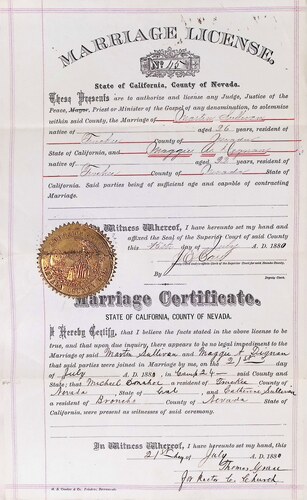 MARRIAGE LICENSE,
No. 45
State of California, County of Nevada.
These Presents are to authorize and license any Judge, Justice of the
Peace, Mayor, Priest or Minister of the Gospel of any denomination, to solemnize
within said County, the Marriage of Martin Sullivan
native of aged 26 years, resident of
Truckee County of Nevada
State of California, and Maggie A. Dignan
native of aged 23 years, resident of
Truckee County of Nevada State of
California. Said parties being of sufficient age and capable of contracting
Marriage.
In Witness Whereof, I have hereunto set my hand and
affixed the Seal of the Superior Court of said County
this day of July A. D. 1880
By
Deputy
Marriage Certificate.
STATE OF CALIFORNIA, COUNTY OF NEVADA.
I Hereby Certify, that I believe the facts stated in the above license to
be true, and that upon due inquiry, there appears to be no legal impediment to the
Marriage of said Martin Sullivan and Maggie A. Dignan
that said parties were joined in Marriage by me, on the 21st day of
July A. D. 1880, in Camp 24 said County and
State; that Micheel Donahoe a resident of Truckee County of
Nevada, State of Cal and Catherine Sullivan
a resident of Broncho County of Nevada State of
California, were present as witnesses of said ceremony.
In Witness Whereof, I have hereunto set my hand, this
21st day of July A. D. 1880
Thomas Grace
C. Church